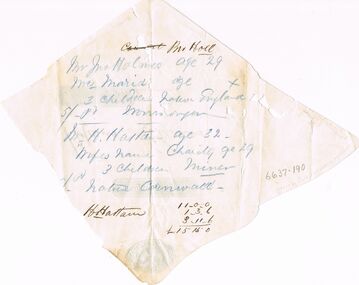 Mr Holl
Mr Jno Holmes age 29
Mrs Maria age
3 Children Native England
Mr H. Hattam age 32 -
Wifes name Charity age 29
3 Children Miner
Native Cornwall -
H Hattam
11-0-0
1-3-6
3-11-6
£15-15-0
6637-190